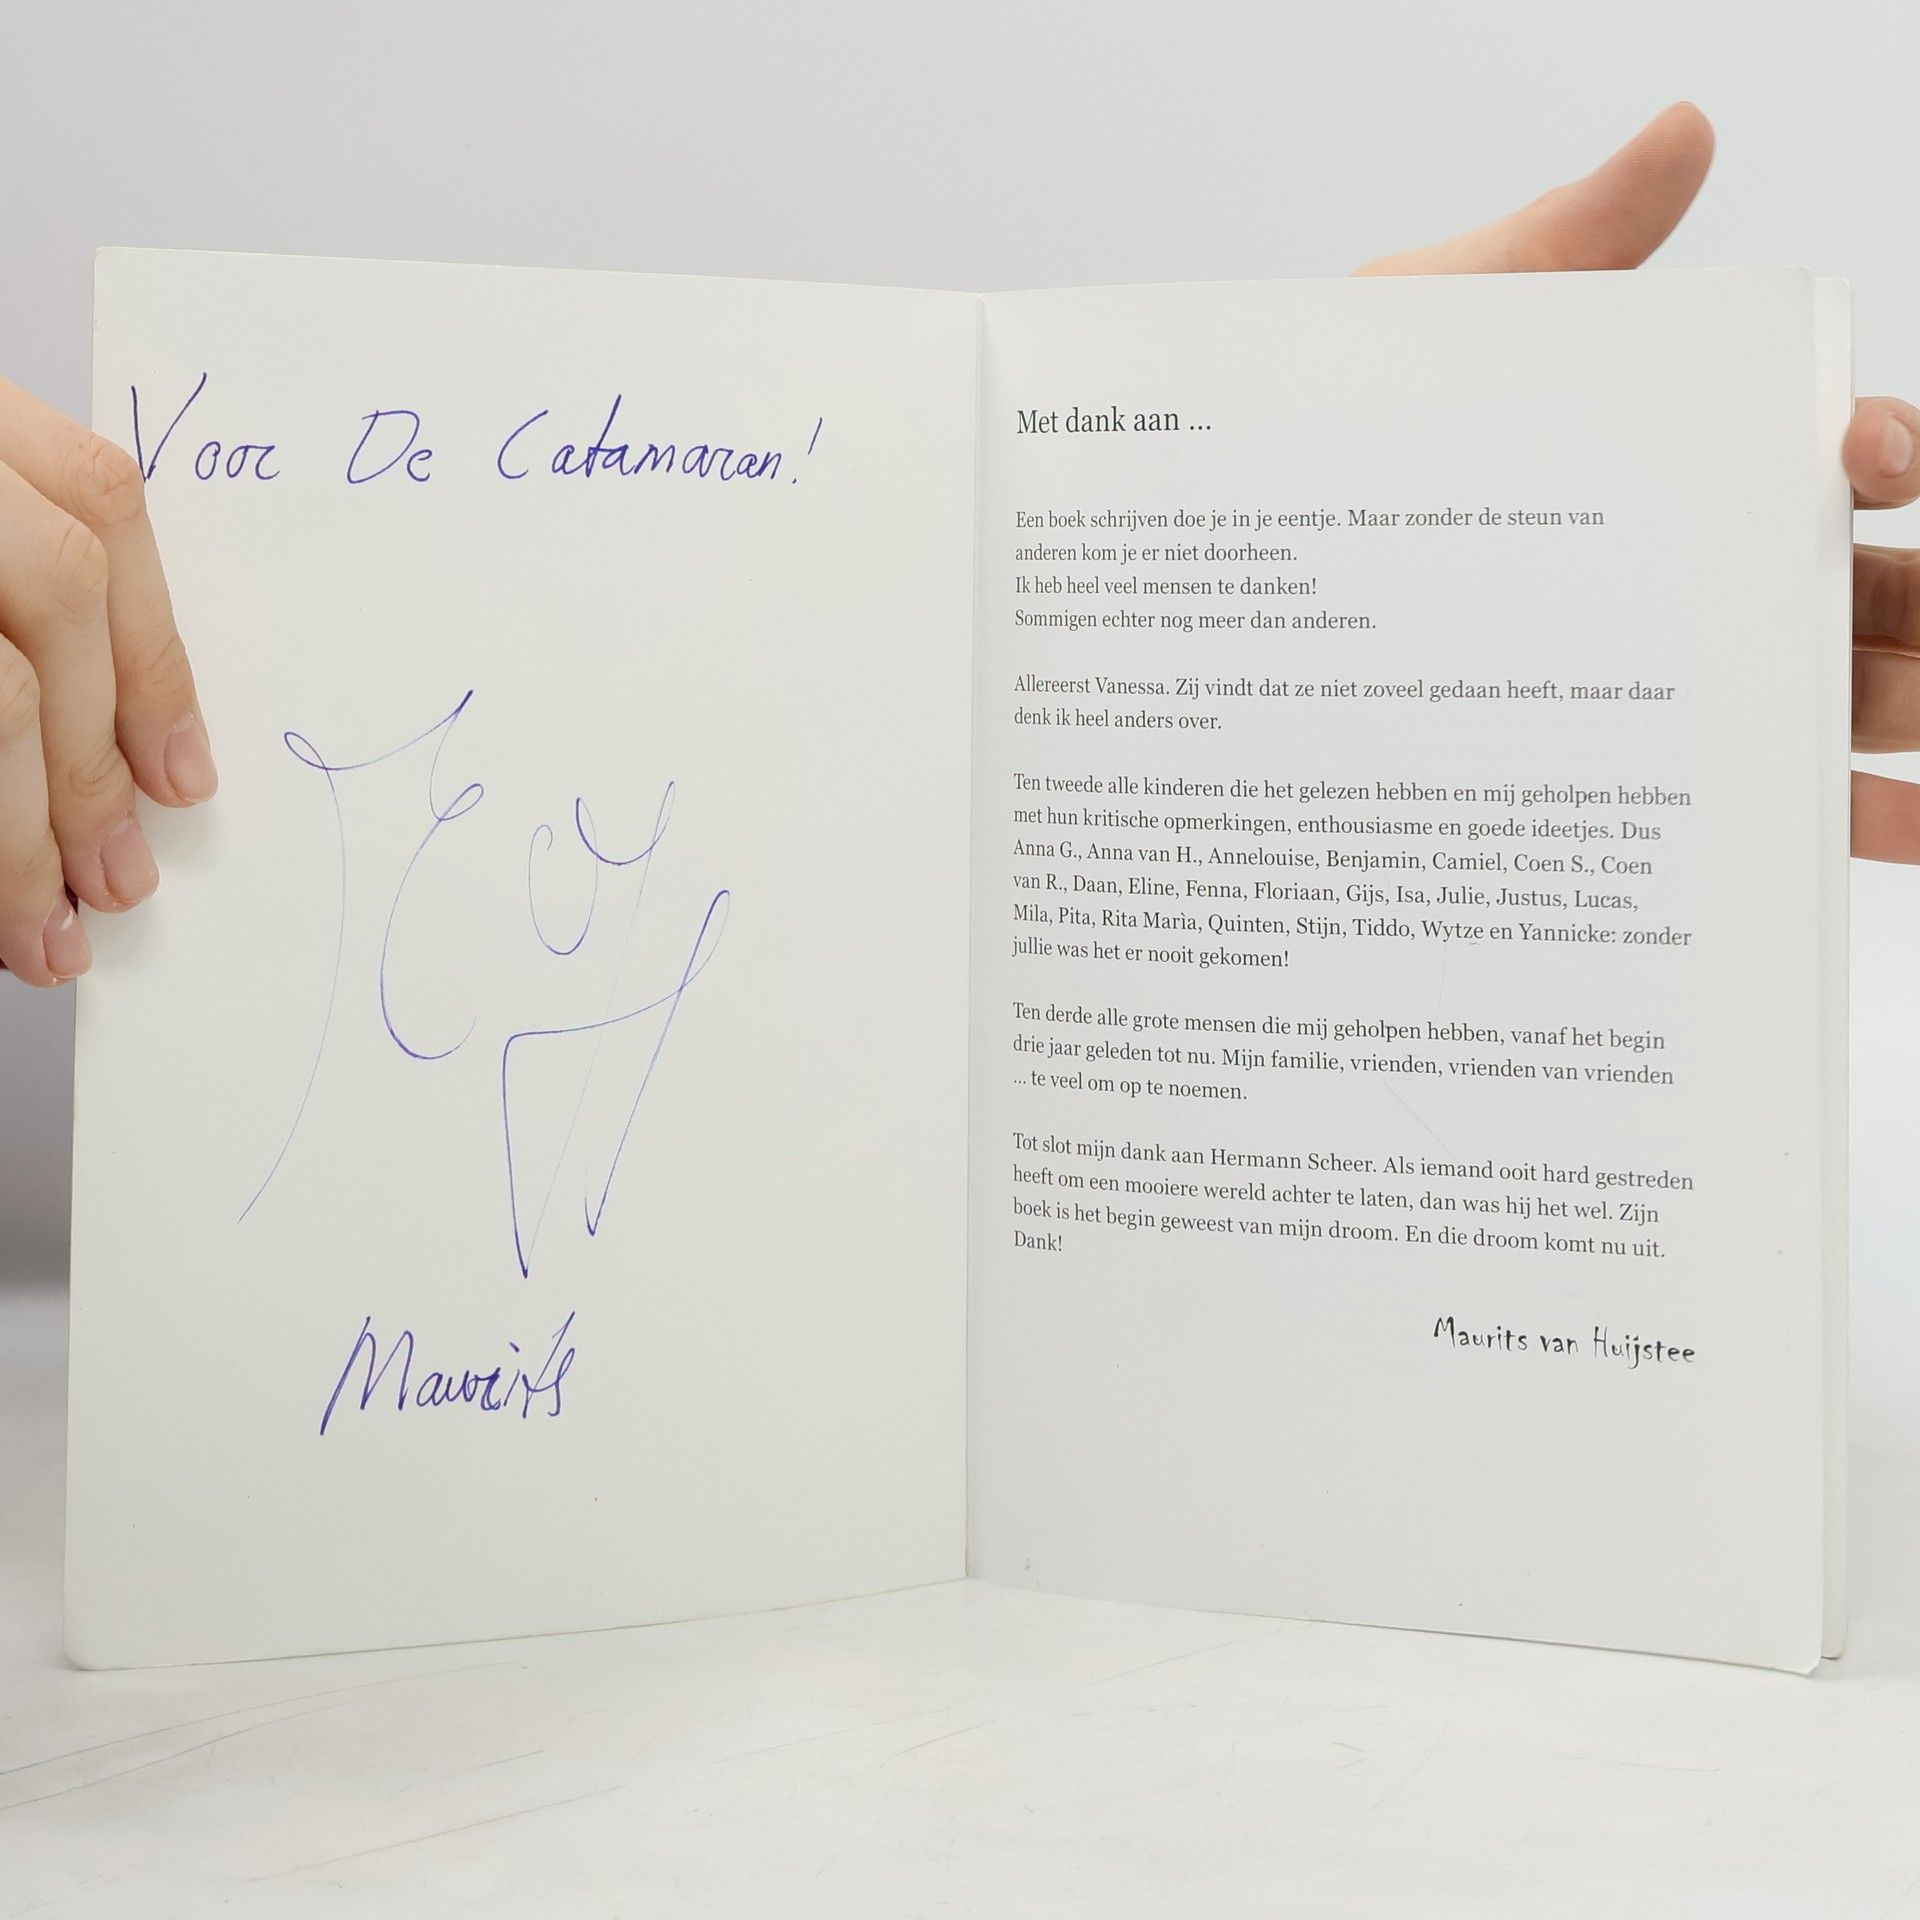 Voor De Catamaran!
Maurits
Met dank aan ...
Een boek schrijven doe je in je eentje. Maar zonder de steun van
anderen kom je er niet doorheen.
Ik heb heel veel mensen te danken!
Sommigen echter nog meer dan anderen.
Allereerst Vanessa. Zij vindt dat ze niet zoveel gedaan heeft, maar daar
denk ik heel anders over.
Ten tweede alle kinderen die het gelezen hebben en mij geholpen hebben
met hun kritische opmerkingen, enthousiasme en goede ideetjes. Dus
Anna G., Anna van H., Annelouise, Benjamin, Camiel, Coen S., Coen
van R., Daan, Eline, Fenna, Floriaan, Gijs, Isa, Julie, Justus, Lucas,
Mila, Pita, Rita Marìa, Quinten, Stijn, Tiddo, Wytze en Yannicke: zonder
jullie was het er nooit gekomen!
Ten derde alle grote mensen die mij geholpen hebben, vanaf het begin
drie jaar geleden tot nu. Mijn familie, vrienden, vrienden van vrienden
... te veel om op te noemen.
Tot slot mijn dank aan Hermann Scheer. Als iemand ooit hard gestreden
heeft om een mooiere wereld achter te laten, dan was hij het wel. Zijn
boek is het begin geweest van mijn droom. En die droom komt nu uit.
Dank!
Maurits van Huijstee